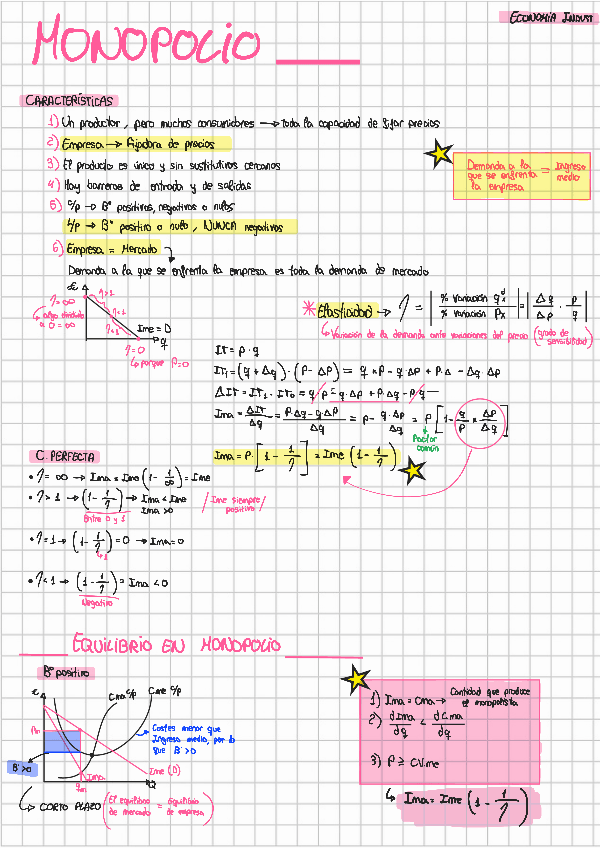 ECONOMÍA INDUST
MONOPOLIO
CARACTERÍSTICAS
1) Un productor, pero muchos consumidores → toda la capacidad de fijar precios
2) Empresa → Fijadora de precios
3) El producto es único y sin sustitutivos cercanos
4) Hay barreras de entrada y de salidas
5) c/p → Bº positivos, negativos o nulos
L/p → Bº positivo o nulo, NUNCA negativos
6) Empresa = Mercado
Demanda a la que se enfrenta la empresa es toda la demanda de mercado
Demanda a la que se enfrenta la empresa = Ingreso medio
€
η = ∞
↳ algo dividido a 0 = ∞
η>1
η=1
η<1
Ime = D
q
η = 0
↳ porque P=0
* Elasticidad → η = | % variación q d x / % variación Px | = | Δq / Δp · p / q |
↳ Variación de la demanda ante variaciones del precio (grado de sensibilidad)
IT = p · q
IT₁ = (q + Δq) · (P - ΔP) = q · P - q · ΔP + P · Δ - Δq · ΔP
ΔIT = IT₁ - IT₀ = q P - q · ΔP + P · Δq - P · q
Ima = ΔIT / Δq = P · Δq - q · ΔP / Δq = P - q · ΔP / Δq = P [1 - q / P · ΔP / Δq]
Factor común
Ima = P · [1 - 1/η] = Ime (1 - 1/η)
C. PERFECTA
• η = ∞ → Ima = Ime (1 - 1/∞) = Ime
• η > 1 → (1 - 1/η) → Ima < Ime
Ima > 0
Entre 0 y 1
/ Ime siempre positivo /
• η = 1 → (1 - 1/η) = 0 → Ima = 0
↳ 1
• η < 1 → (1 - 1/η) = Ima < 0
Negativo
EQUILIBRIO EN MONOPOLIO
Bº positivo
€
Cma c/p
Cme c/p
Pm
Costes menor que Ingreso medio, por lo que B > 0
B > 0
Ima
qm
Ime (D)
Q
↳ CORTO PLAZO (El equilibrio de mercado = Equilibrio de empresa)
1) Ima = Cma → Cantidad que produce el monopolista
2) dIma / dq < dCma / dq
3) P ≥ CVme
↳ Ima = Ime (1 - 1/η)